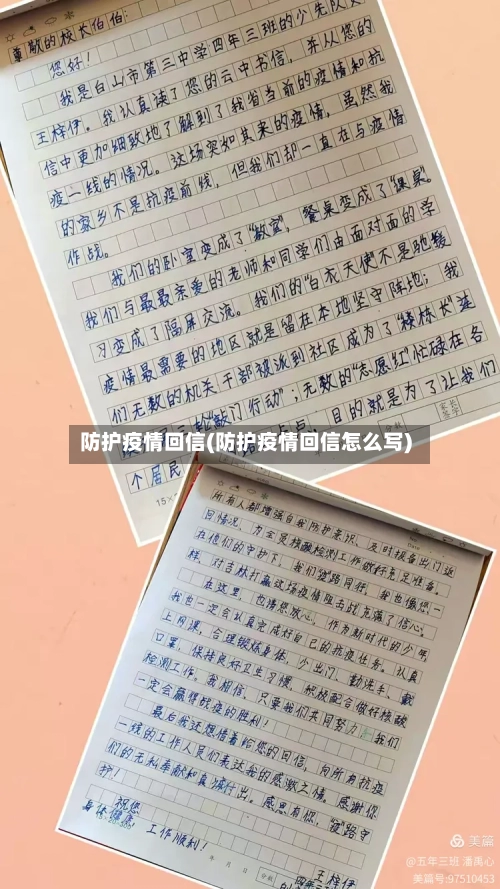 尊敬的校长伯伯:
您好!
我是白山市第三中学四年三班的少先队员
王梓伊。我认真读了您的云中书信,并从您的
信中更加细致地了解到了我省当前的疫情和抗
疫一线的情况。这场突如其来的疫情,虽然我
的家乡不是抗疫前线,但我们却一直在与疫情
作战。
我们的卧室变成了“教室”,餐桌变成了“课桌”。
我们与最最亲爱的老师和同学们由面对面的学
习变成了隔屏交流。我们的“白衣天使”不是驰援
疫情最需要的地区就是留在本地坚守阵地;我
们无数的机关干部被派到社区成为了“楼栋长”逐
“敲门行动”,无数的“志愿红”忙碌在各
目的就是为了让我们
防护疫情回信(防护疫情回信怎么写)
个居民
15×
家长
签字
Date
所有人都增强自我防护意识、及时报备出门返
回情况,为全员核酸检测工作做好充足准备。
在他们的守护下,我们暖路同行,我也像您一
样,对吉林打赢这场疫情阻击战充满了信心。
在这里,也请您放心,作为新时代的少年,
我也一定会认真完成好自己的抗疫任务。认真
上网课,合理锻炼身体,少出门,勤洗手,戴
口罩,保持良好卫生习惯,积极配合做好核酸
检测工作,我相信,只要我们共同努力,我们
一定会赢得战疫的胜利!
最后我还想借着给您的回信,向所有抗疫
一线的工作人员们表达我的感激之情。感谢你
们的无私奉献和真诚付出。感恩有你,“暖”路守
护!
祝您
身体健康
工作顺利!
年 月 日
王梓伊
四年三班
美篇
@五年三班 潘禹心
美篇号:97510453